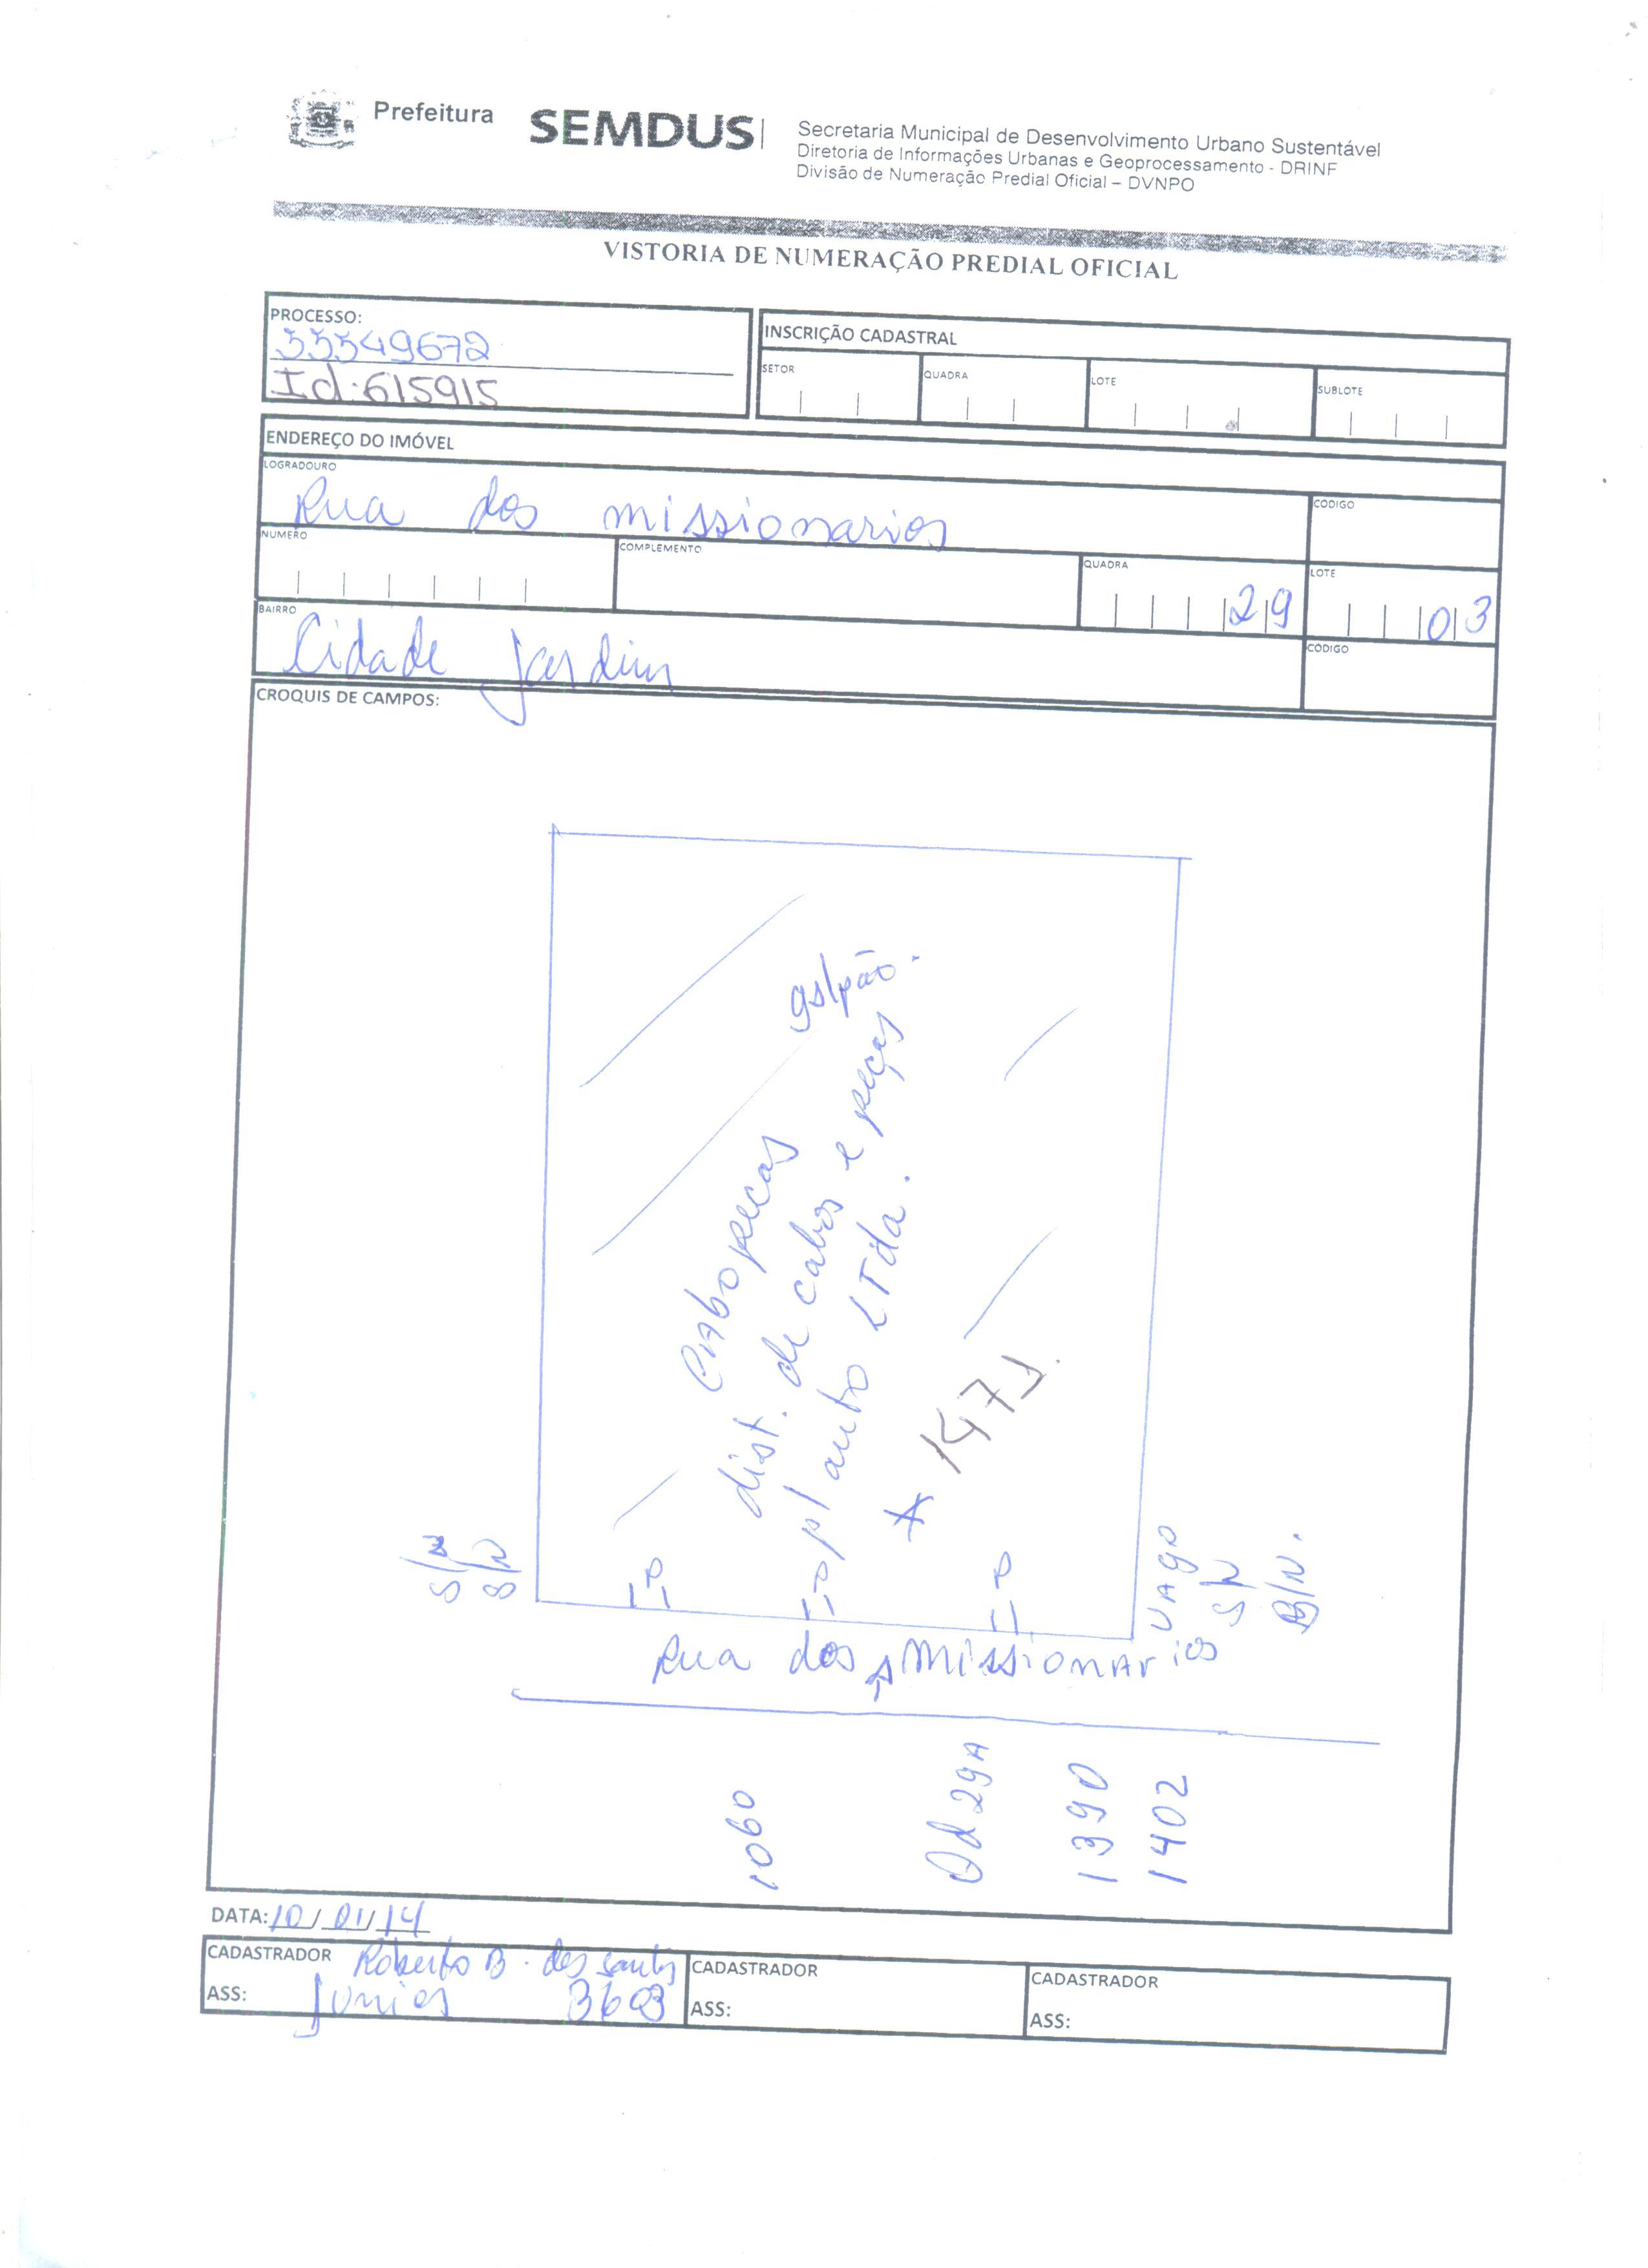 Prefeitura
SEMDUS
Secretaria Municipal de Desenvolvimento Urbano Sustentável
Diretoria de Informações Urbanas e Geoprocessamento - DRINF
Divisão de Numeração Predial Oficial – DVNPO
VISTORIA DE NUMERAÇÃO PREDIAL OFICIAL
PROCESSO:
55549672
Id:615915
INSCRIÇÃO CADASTRAL
SETOR
QUADRA
LOTE
SUBLOTE
ENDEREÇO DO IMÓVEL
LOGRADOURO
Rua dos missionarios
CODIGO
NUMERO
COMPLEMENTO
QUADRA
29
LOTE
03
BAIRRO
Cidade Jardim
CODIGO
CROQUIS DE CAMPOS:
galpão.
Cabopecas
dist. de cabos e peças
p/ auto LTda.
1471.
S/N
S/N
VAgo
S/N
S/N.
Rua dos missionArios
1060
Qd 29A
1390
1402
DATA: 10/01/14
CADASTRADOR Roberto B. dos santos
ASS: Junior 3603
CADASTRADOR
ASS:
CADASTRADOR
ASS: